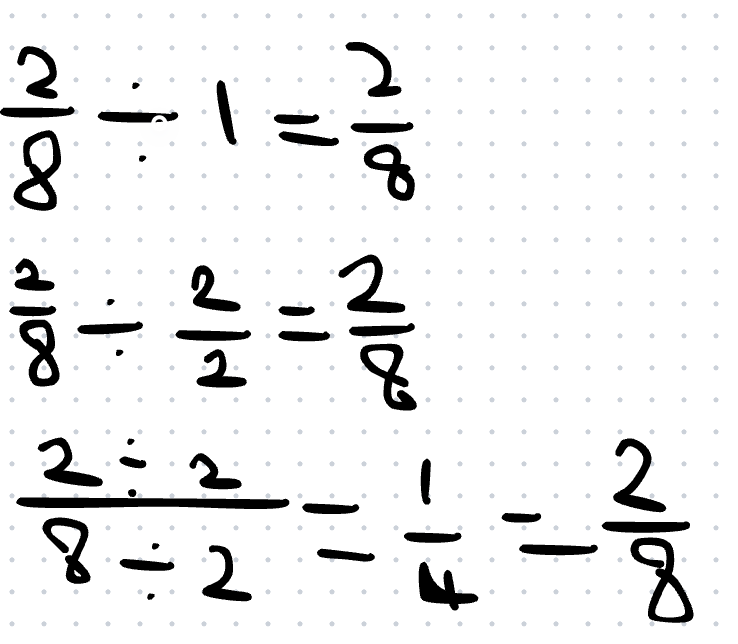 2/8 ÷ 1 = 2/8
2/8 ÷ 2/2 = 2/8
2 ÷ 2/8 ÷ 2 = 1/4 = 2/8